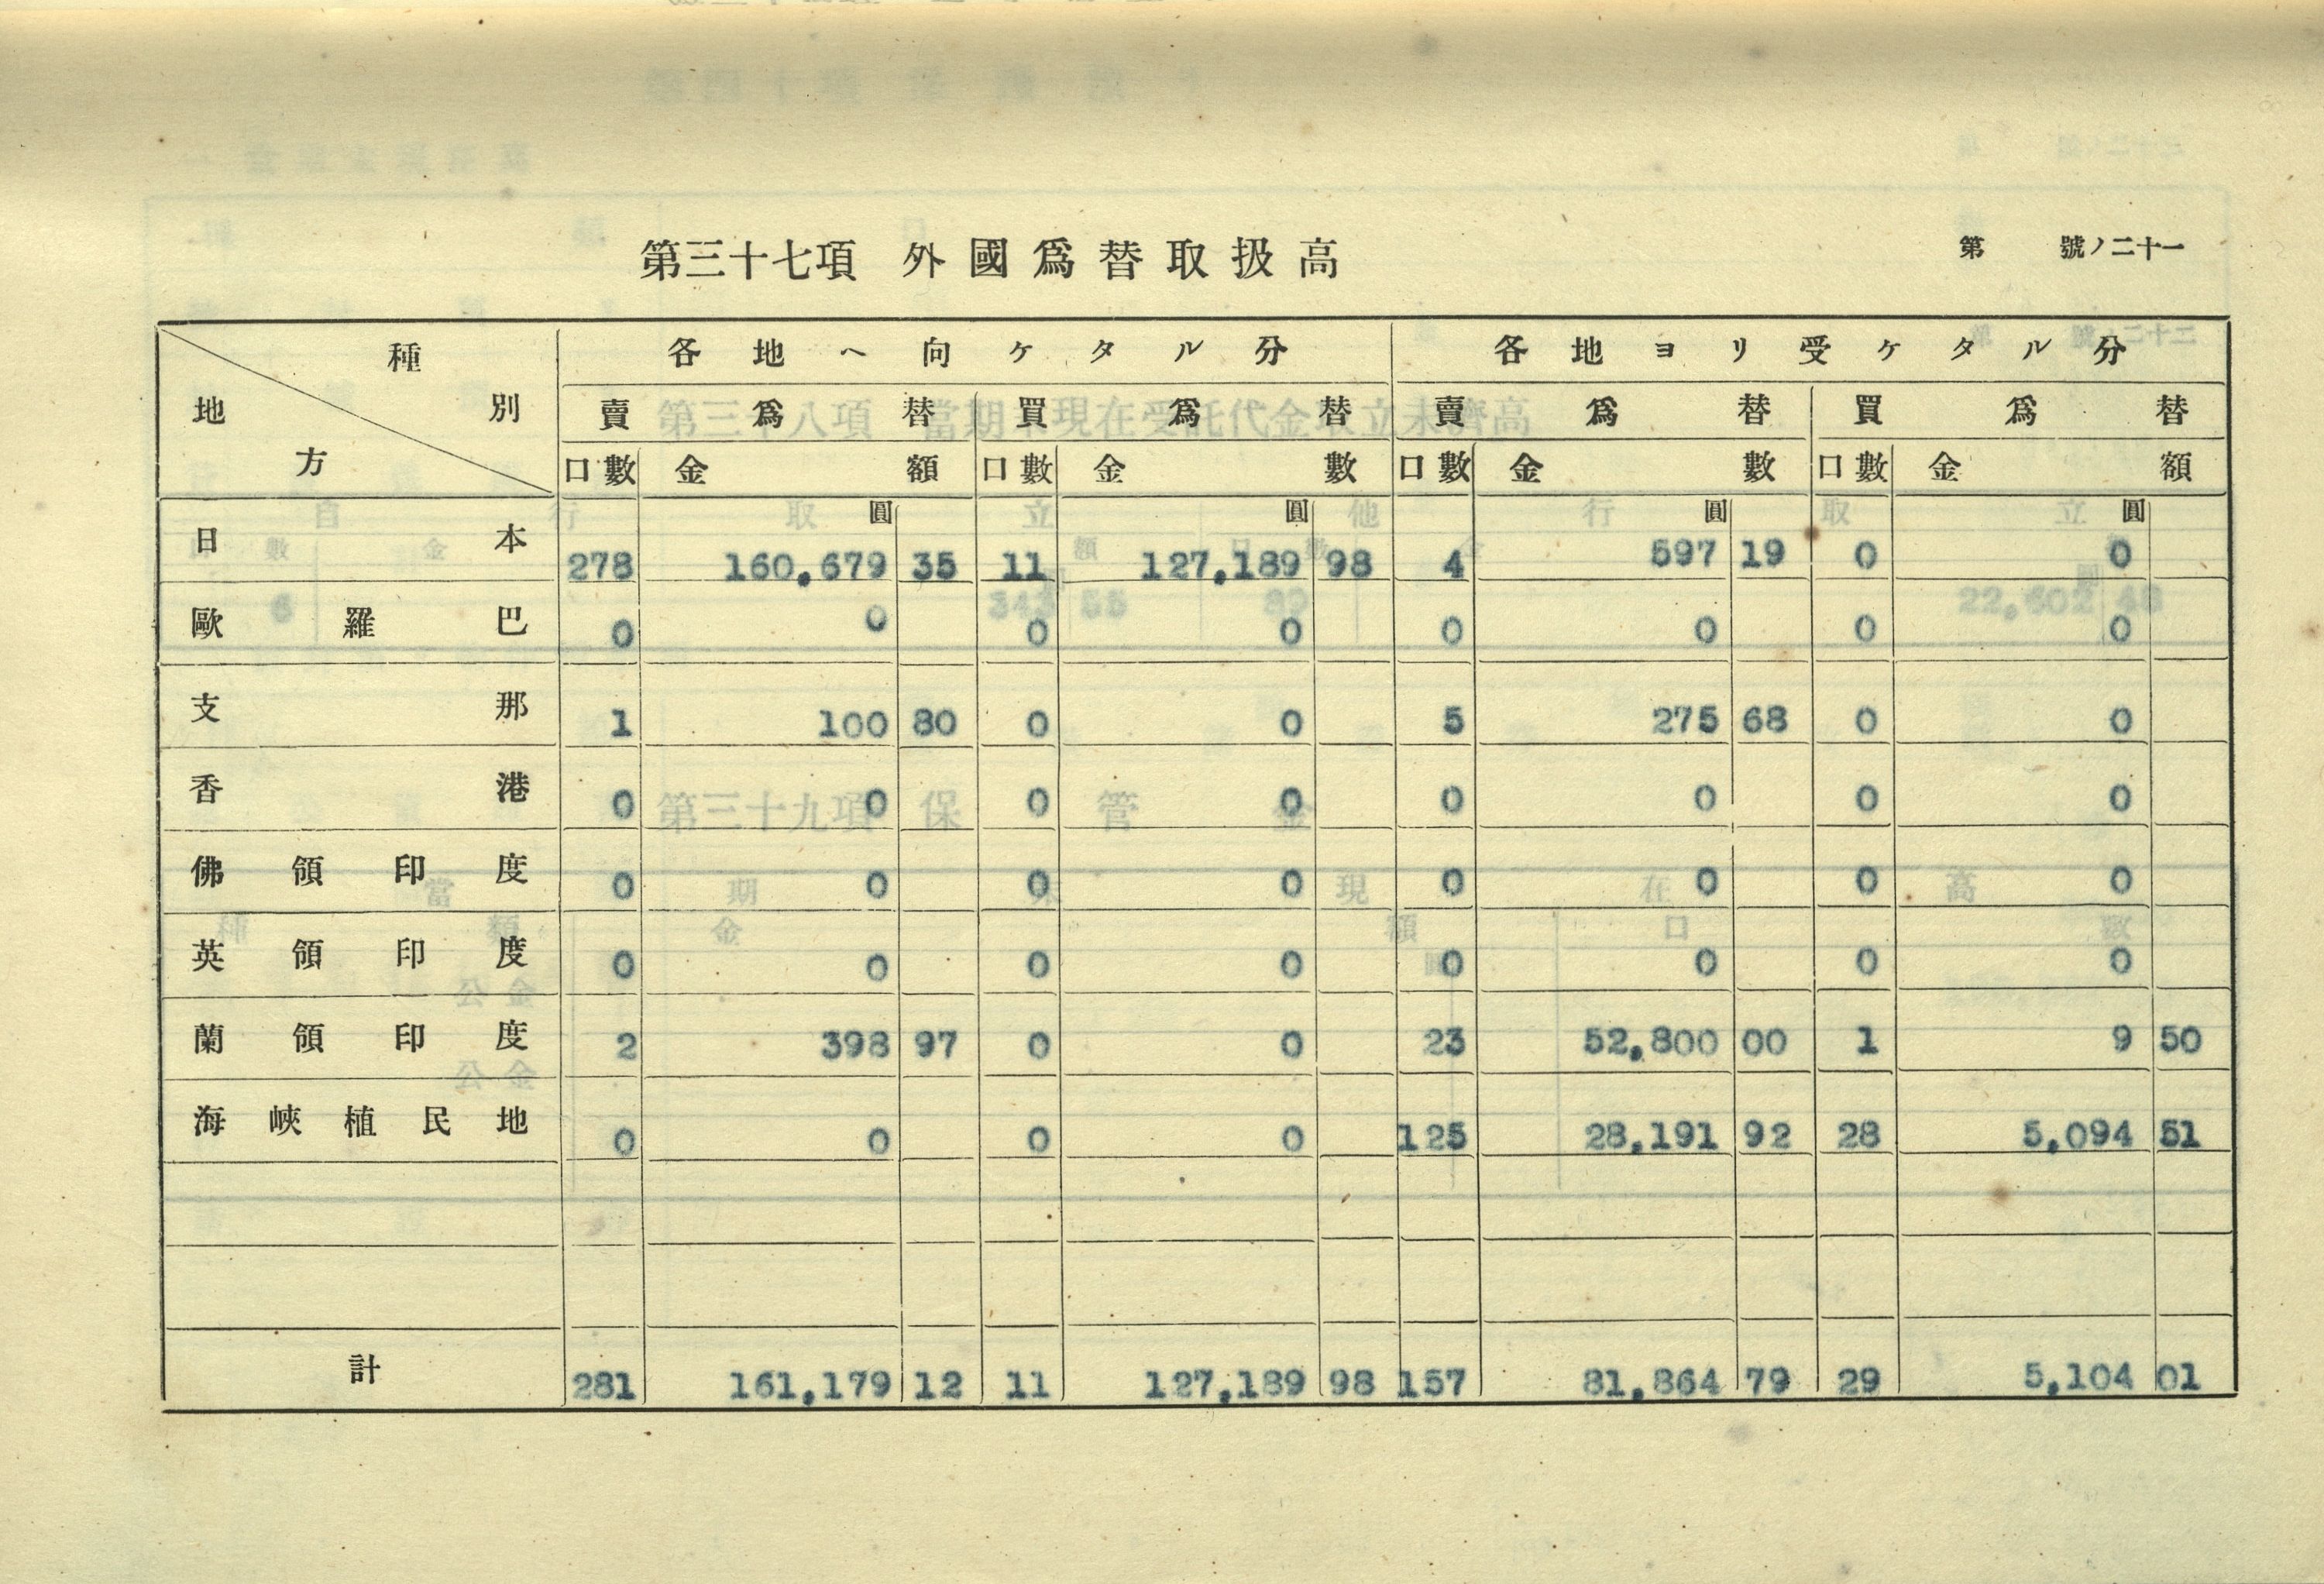 第三十七項 外國爲替取扱高
第 號ノ二十一
種別 地方 各地ヘ向ケタル分 各地ヨリ受ケタル分
賣爲替 買爲替 賣爲替 買爲替
口數 金額 口數 金數 口數 金數 口數 金額
圓 圓 圓 圓
日本 278 160,679 35 11 127,189 98 4 597 19 0 0
歐羅巴 0 0 0 0 0 0 0 0
支那 1 100 80 0 0 5 275 68 0 0
香港 0 0 0 0 0 0 0 0
佛領印度 0 0 0 0 0 0 0 0
英領印度 0 0 0 0 0 0 0 0
蘭領印度 2 398 97 0 0 23 52,800 00 1 9 50
海峽植民地 0 0 0 0 125 28,191 92 28 5,094 51
計 281 161,179 12 11 127,189 98 157 81,864 79 29 5,104 01